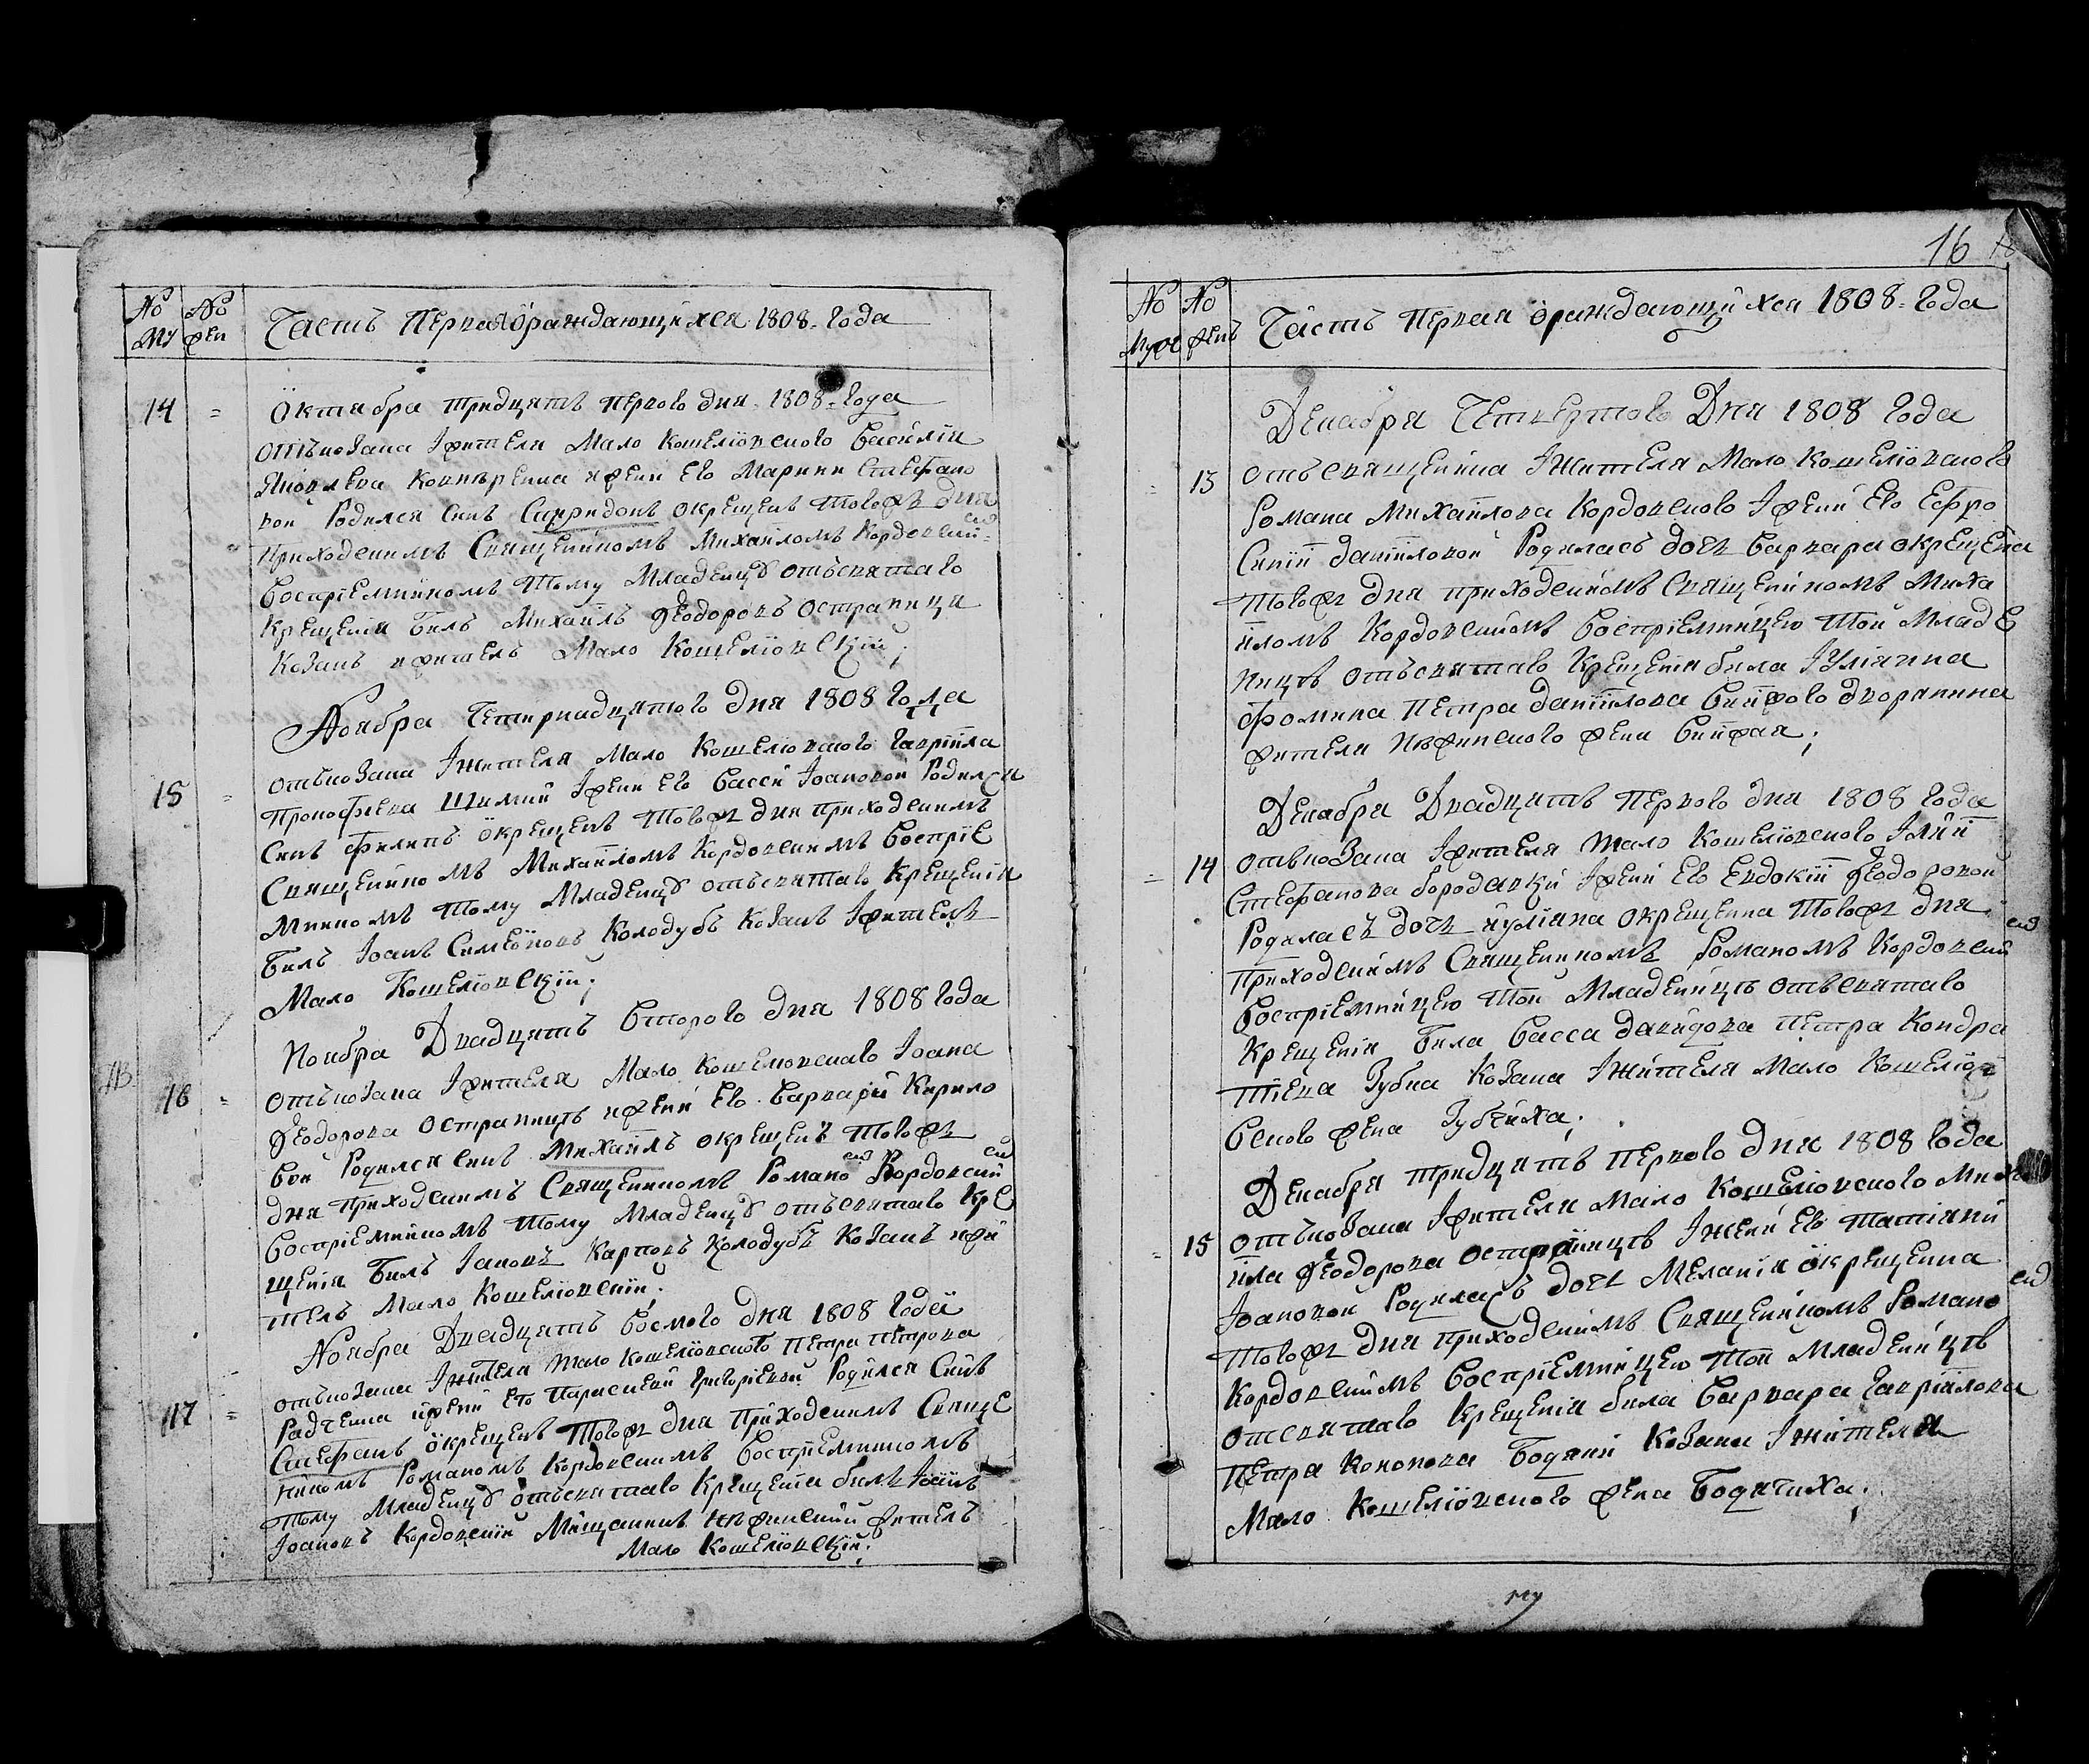 No No
Му жен
Часть Первая ораждающихся 1808. Года
14 =
Октября тридцять первого дня 1808. Года
отъ козака Iжителя Мало Кошелювского Василия
Яковлева Ковтренка и жени Его Марини Стефано
вой Родился Синъ Спиридонъ окрещенъ Тогожъ дня
Приходскимъ Священникомъ Михаиломъ Кордовским
Воспріемникомъ Тому Младенцу отъ святаго
Крещенія Билъ Михаилъ Феодоровъ Остраница
Козакъ и житель Мало Кошелювскій;
Ноября Четирнадцятого Дня 1808 Года
15 =
отъ козака Iжителя Мало Кошелювского Гавриила
Прокофіева Iжени Его Васси Iоановой Родился
Синъ Филипъ Окрещенъ Тогожъ Дня приходскимъ
Священникомъ Михаиломъ Кордовскимъ Воспріе
мникомъ Тому Младенцу отъ святаго Крещенія
Билъ Iоанъ Симеоновъ Колодубъ Козакъ Iжитель
Мало Кошелювскій;
Ноября Двадцять Второго Дня 1808 Года
16 =
отъ козака Iжителя Мало Кошелювскаго Iоана
Феодорова Остраницъ и жени Его Варвари Кирило
вой Родился Синъ Михаилъ окрещенъ Тогожъ
Дня Приходскимъ Священикомъ Романо Кордовский
Воспріемникомъ Тому Младенцу отъ святаго Кре
щенія Билъ Iаковъ Карповъ Колодубъ Козакъ и жи
тель Мало Кошелювскій.
Ноября Двадцять Восмого Дня 1808 Года
17 =
отъ козака Iжителя Мало Кошелювского Петра Петрова
Радченка и жени Его Параскеви Григоріевой Родился Синъ
Стефанъ окрещенъ Тогожъ Дня Приходскимъ Свяще
никомъ Романомъ Кордовскимъ Воспріемникомъ
Тому Младенцу отъ святаго Крещенія билъ Iоанъ
Iоановъ Кордовскій Мещанинъ Нѣжинский житель
Мало Кошелювскій;
16
No No
Муж Женъ
Часть Первая ораждающихся 1808. Года
Декабря Четвертого Дня 1808 Года
= 13
отъ священика Iжителя Мало Кошелювского
Романа Михайлова Кордовского Iжени Его Ефро
Синіи Даніиловой Родилась дочь Варвара окрещена
Тогожъ дня приходскимъ Священникомъ Миха
иломъ Кордовскимъ Воспріемницею Той Младе
ницѣ отъ святаго Крещенія била Iуліанна
Фомина Петра Даніилова дворанина
жителя Нѣжинского жена
Декабря Двадцять Первого дня 1808 Года
= 14
отъ козака Iжителя Мало Кошелювского Iліи
Стефанова Бородавки Iжени Его Евдокіи Феодоровой
Родилась дочь иуліана окрещенна Тогожъ дня
Приходскимъ Священникомъ Романомъ Кордовский
Воспріемницею Той Младеницѣ отъ святаго
Крещенія Била Васса Давидова Петра Кондра
тіева Зубка Козака Iжителя Мало Кошелюв
Вского жена Зубчиха;
Декабря тридцять первого дня 1808 Года
= 15
отъ козака Iжителя Мало Кошелювского Миха
ила Феодорова Остраницѣ Iжени Его Татіани
Iоановой Родилась дочь Меланія окрещенна
Тогожъ Дня приходскимъ Священникомъ Романо
Кордовскимъ Воспріемницею Той Младеницѣ
отсвятаго Крещенія била Варвара Гавріилова
Петра Кононова Бодяки Козака Iжителя
Мало Кошелювского жена Бодячиха;